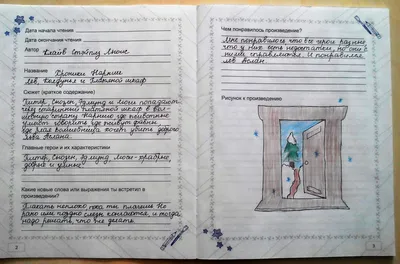 Дата начала чтения
Дата окончания чтения
Автор Клайв Стейплз Льюис
Название Хроники Нарнии
Лев, Колдунья и Платяной шкаф
Сюжет (краткое содержание)
Питер, Сьюзен, Эдмунд и Люси попадают
через старинный платяной шкаф в вол-
шебную страну Нарнию где животные
умеют говорить где живут фавны,
где злая волшебница хочет убить доброго
льва Аслана.
Главные герои и их характеристики
Питер, Сьюзен, Эдмунд, Люси - храбрые,
добрые и умные.
Какие новые слова или выражения ты встретил в
произведении?
Плакать неплохо пока ты плачешь Но
рано или поздно слезы кончаются, и тогда
надо решать, что же делать.
2
Чем понравилось произведение?
Мне понравилось что все герои разные,
что у них есть недостатки, но они с
ними справляются. И понравился
лев Аслан.
Рисунок к произведению
3